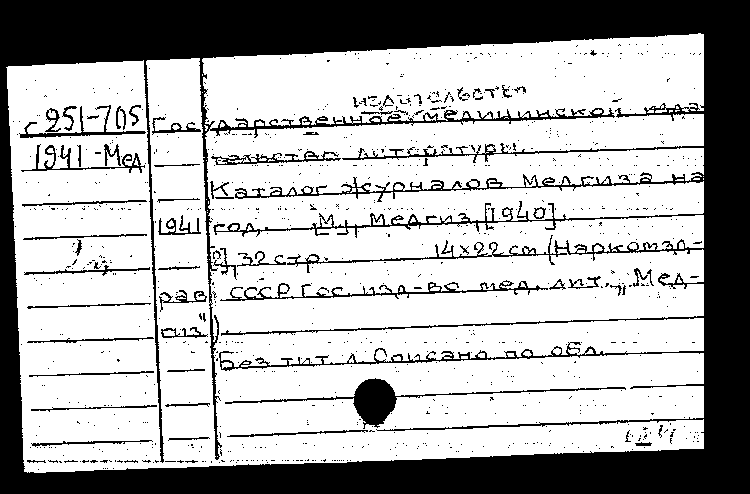 издательство
с 251-705 Государственное медицинской изда-
1941-Мед тельство литературы.
Каталог журналов Медгиза на
1941 год. [М.], Медгиз, [1940].
[2], 32 стр. 14x22 cm (Наркомзд-
рав СССР. Гос. изд-во мед. лит. „Мед-
гиз").
Без тит. л. Описано по обл.